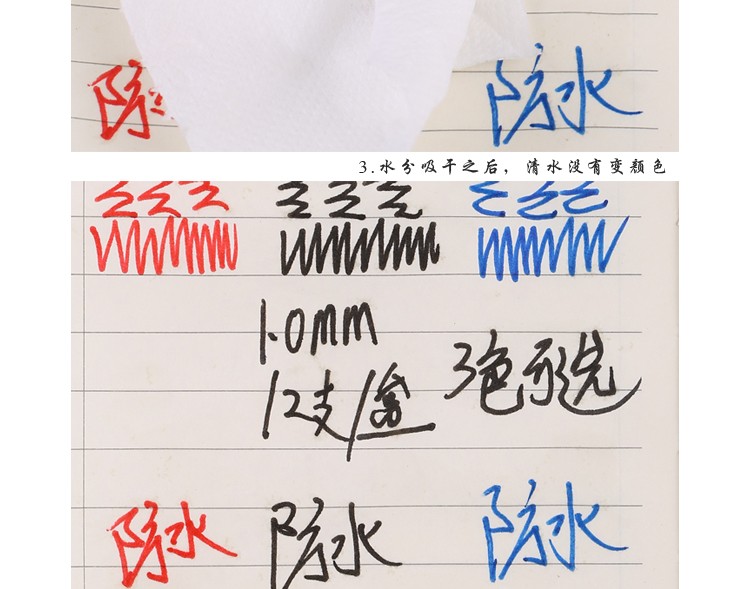 防 防水
3.水分吸干之后，清水没有变颜色
1.0mm
12支/盒 3色可选
防水 防水 防水